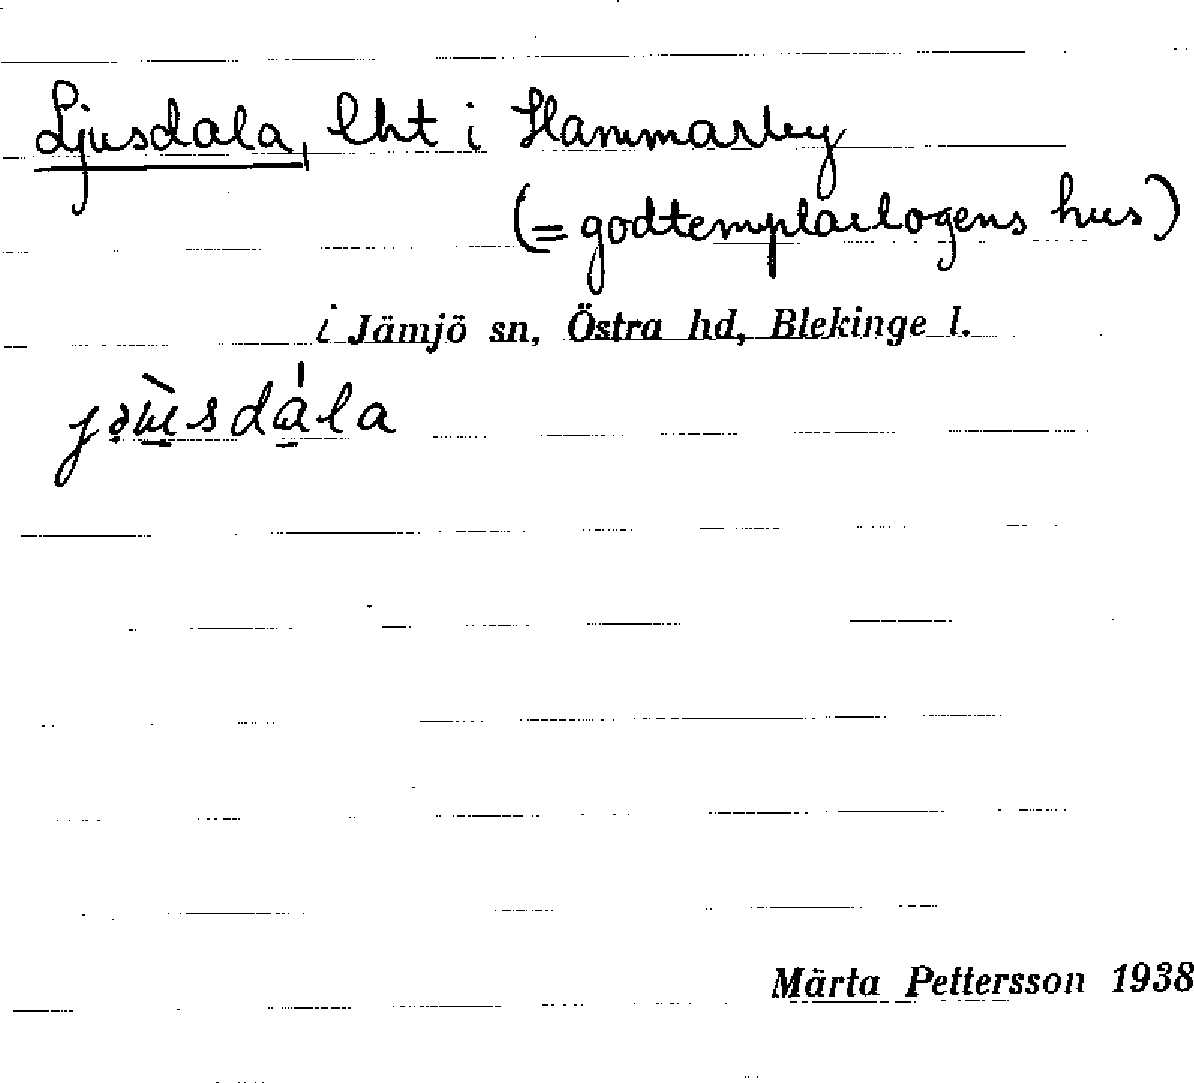 Ljusdala, lht i Hammarby
(= godtemplarlogens hus)
i Jämjö sn, Östra hd, Blekinge l.
Märta Pettersson 1938